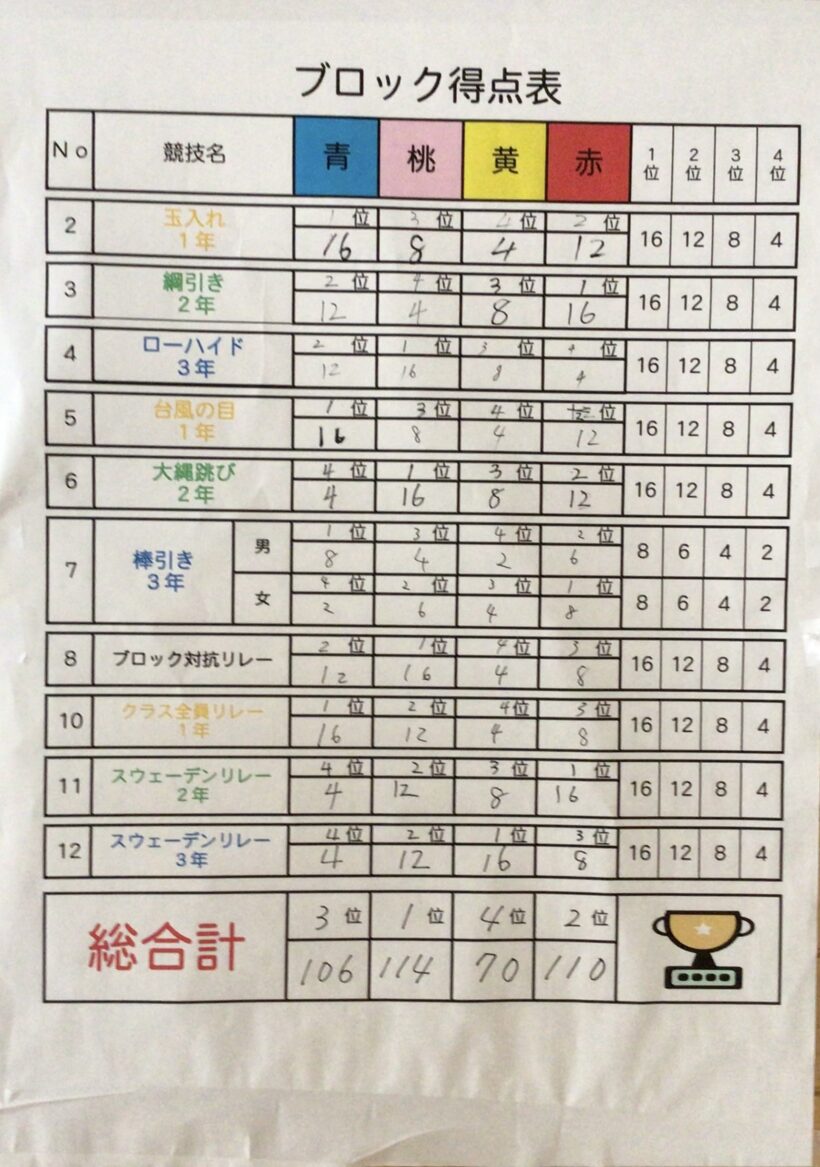 ブロック得点表
No 競技名 青 桃 黄 赤 1位 2位 3位 4位
2 玉入れ 1年 1位 3位 4位 2位 16 12 8 4
16 8 4 12
3 綱引き 2年 2位 4位 3位 1位 16 12 8 4
12 4 8 16
4 ローハイド 3年 2位 1位 3位 4位 16 12 8 4
12 16 8 4
5 台風の目 1年 1位 3位 4位 位 16 12 8 4
16 8 4 12
6 大縄跳び 2年 4位 1位 3位 2位 16 12 8 4
4 16 8 12
7 棒引き 3年 男 1位 3位 4位 2位 8 6 4 2
8 4 2 6
女 4位 2位 3位 1位 8 6 4 2
2 6 4 8
8 ブロック対抗リレー 2位 1位 4位 3位 16 12 8 4
12 16 4 8
10 クラス全員リレー 1年 1位 2位 4位 3位 16 12 8 4
16 12 4 8
11 スウェーデンリレー 2年 4位 2位 3位 1位 16 12 8 4
4 12 8 16
12 スウェーデンリレー 3年 4位 2位 1位 3位 16 12 8 4
4 12 16 8
総合計 3位 1位 4位 2位
106 114 70 110